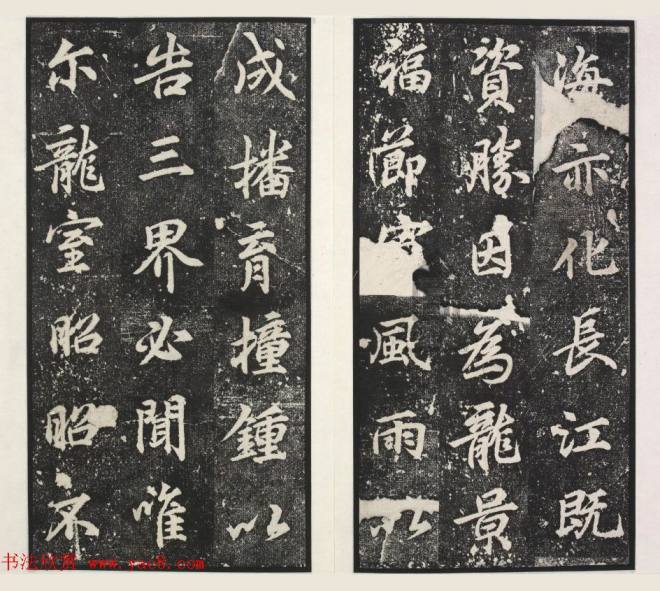 海亦化長江既
資勝因為龍景
福節風雨以
成播育撞鍾以
告三界必聞唯
尔龍室昭昭不
书法欣赏 www.yac8.com